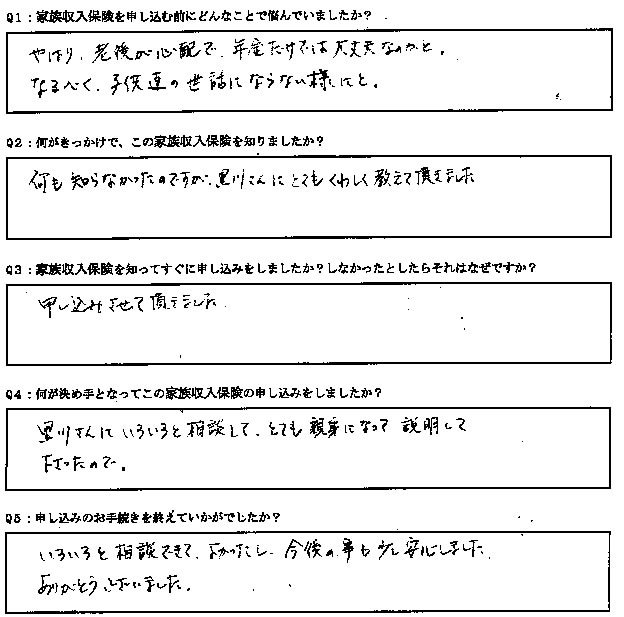 Q1：家族収入保険を申し込む前にどんなことで悩んでいましたか？
やはり、老後が心配で、年金だけでは大丈夫なのかと。
なるべく、子供達の世話にならない様にと。
Q2：何がきっかけで、この家族収入保険を知りましたか？
何も知らなかったのですが、黒川さんにとてもくわしく教えて頂きました
Q3：家族収入保険を知ってすぐに申し込みをしましたか？しなかったとしたらそれはなぜですか？
申し込みさせて頂きました
Q4：何が決め手となってこの家族収入保険の申し込みをしましたか？
黒川さんにいろいろと相談して、とても親身になって説明して
下さったので。
Q5：申し込みのお手続きを終えていかがでしたか？
いろいろと相談できて、よかったし、今後の事も少し安心しました
ありがとうございました。